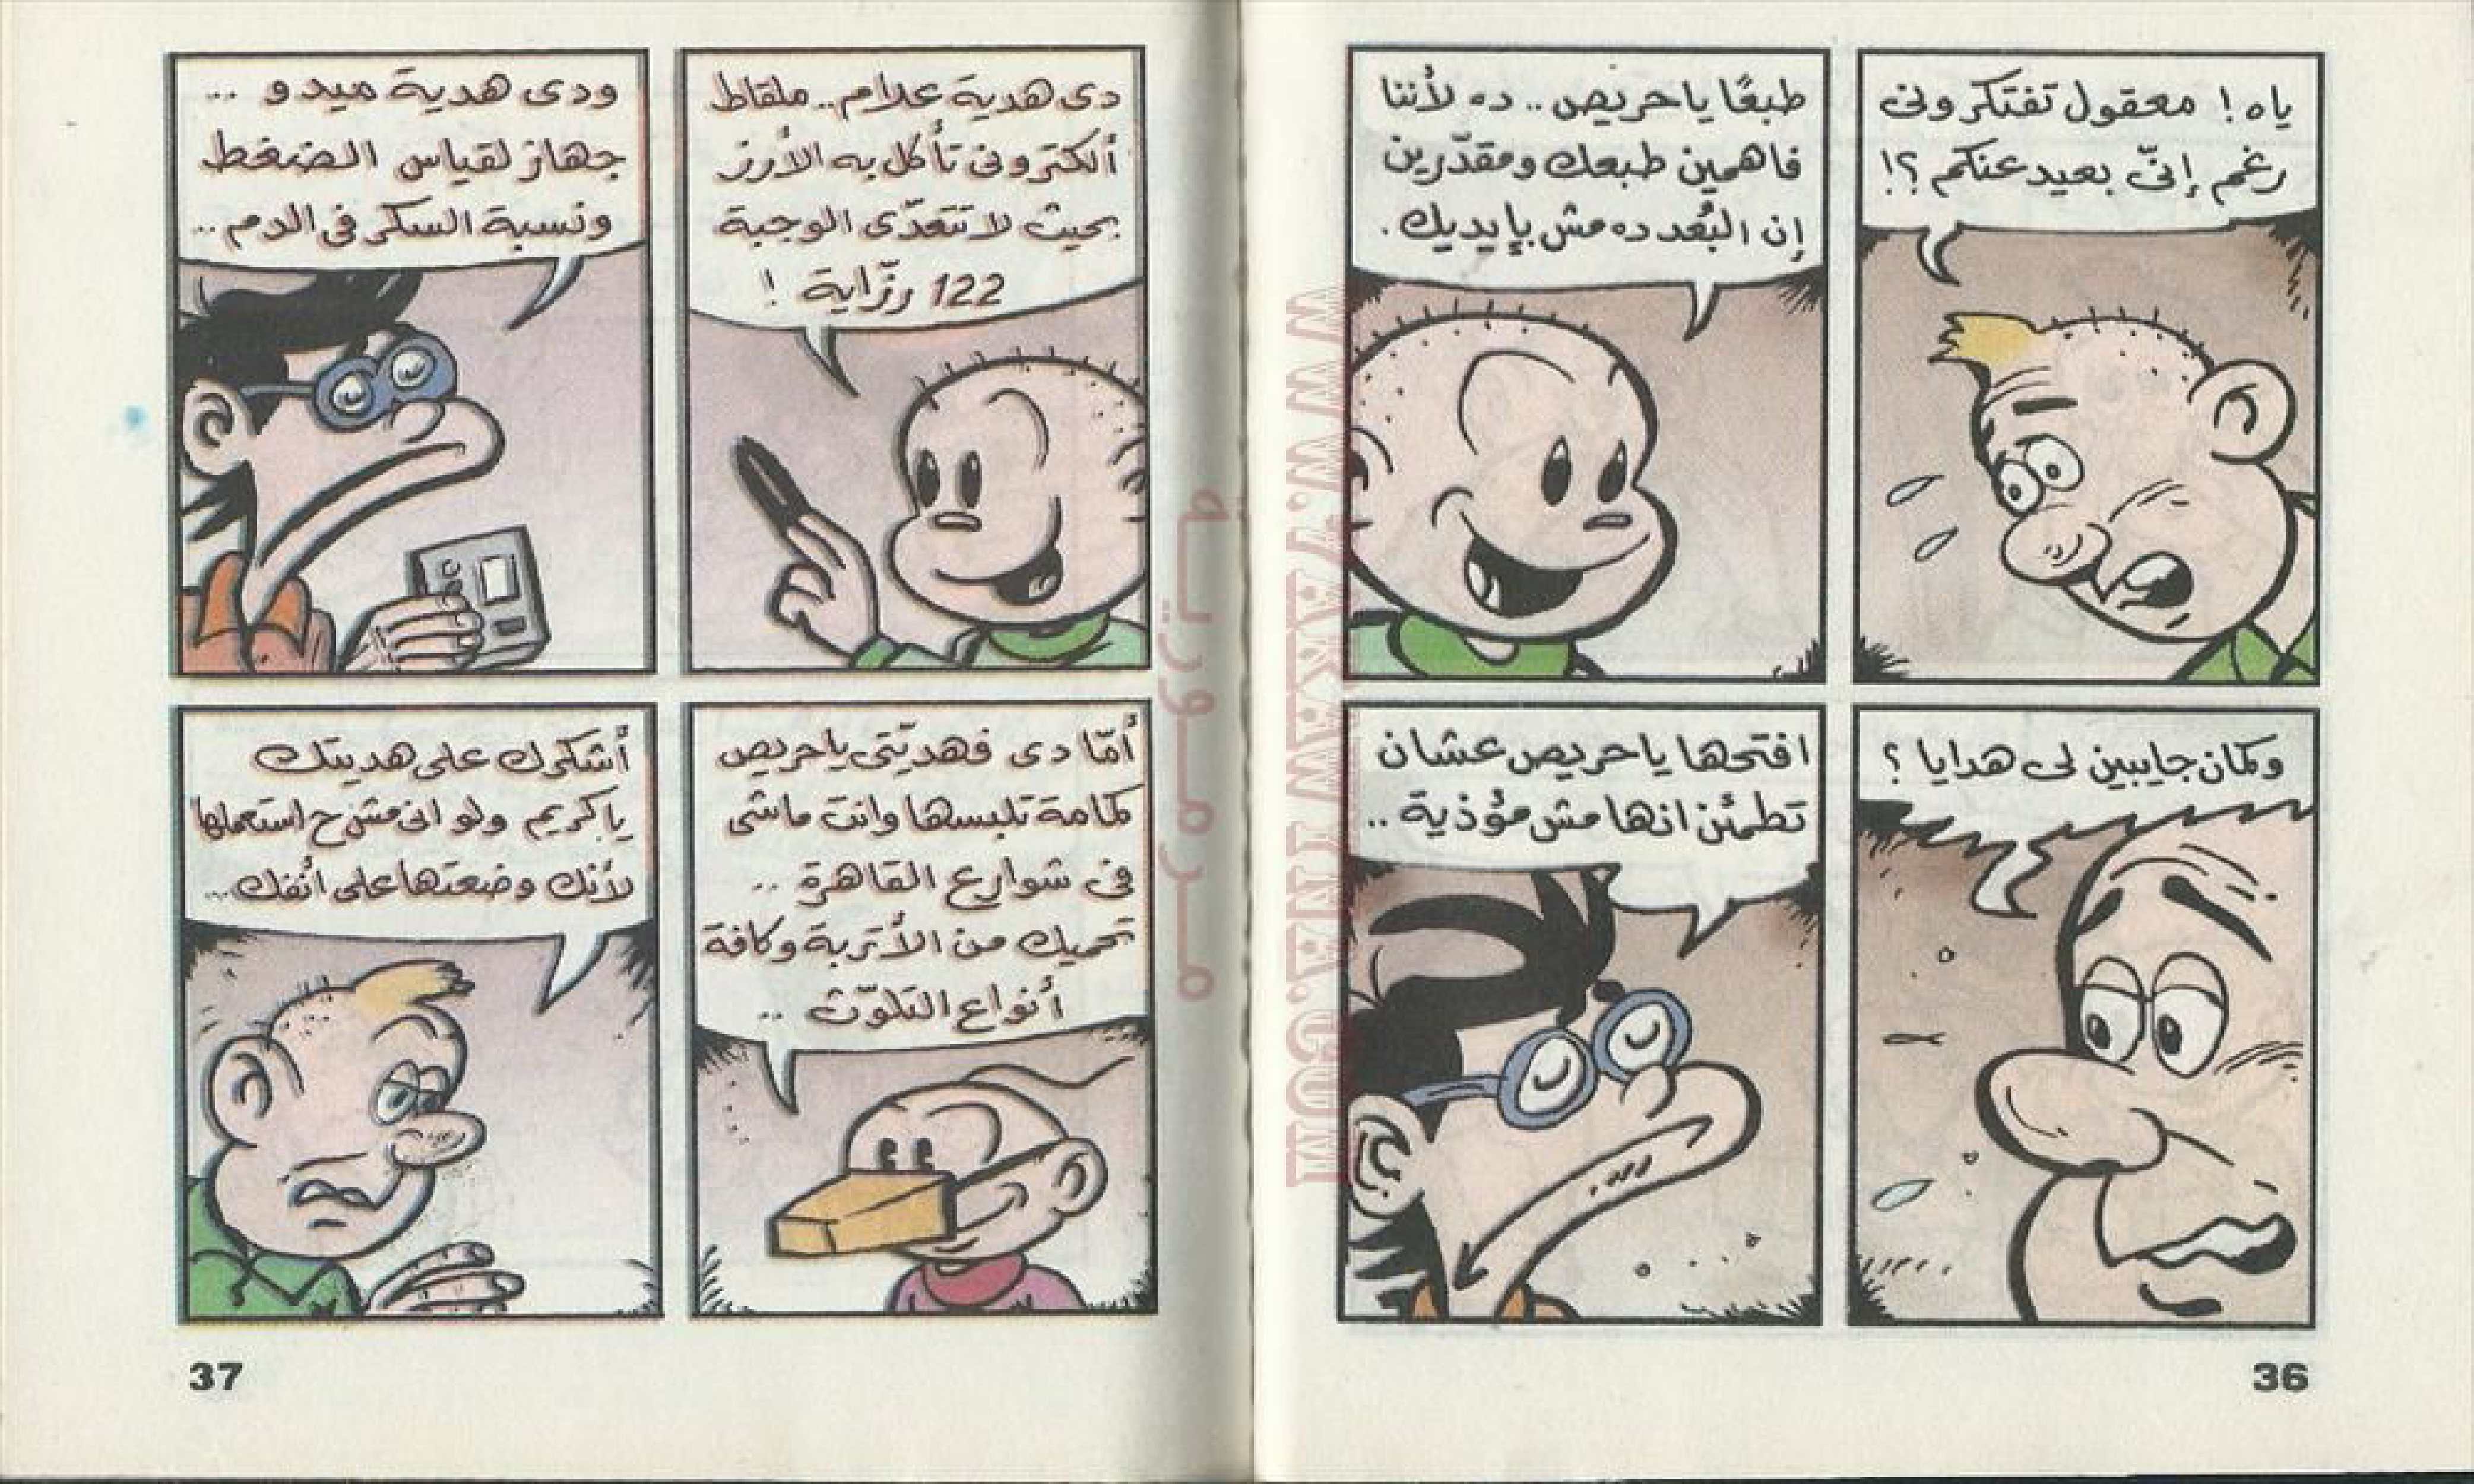 ياه! معقول تفتكرونى
رغم إنّى بعيد عنكم ؟!
طبعًا ياحريص .. ده لأننا
فاهمين طبعك ومقدّرين
إن البُعد ده مش بإيديك .
وكمان جايبين لى هدايا ؟
افتحها ياحريص عشان
تطمئن انها مش مؤذية ..
36
دى هدية علام .. ملقاط
ألكترونى تأكل به الأرز
بحيث لا تتعدّى الوجبة
122 رزّاية !
ودى هدية ميدو ..
جهاز لقياس الضغط
ونسبة السكر فى الدم ..
أمّا دى فهديّتى ياحريص
كمامة تلبسها وانت ماشى
فى شوارع القاهرة ..
تحميك من الأتربة وكافة
أنواع التلوّث ..
أشكرك على هديتك
ياكريم ولو انى مش ح استعملها
لأنك وضعتها على أنفك ..
37
مرمورية